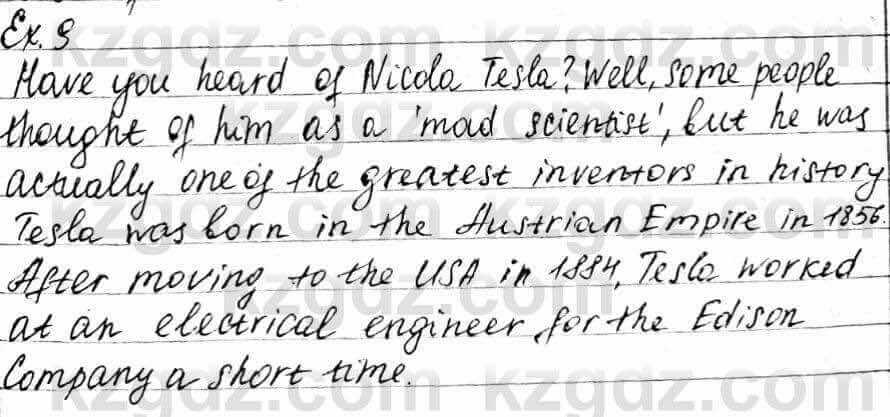 Ex. 9
Have you heard of Nicola Tesla? Well, some people
thought of him as a 'mad scientist', but he was
actually one of the greatest inventors in history
Tesla was born in the Austrian Empire in 1856.
After moving to the USA in 1884, Tesla worked
at an electrical engineer for the Edison
Company a short time.
kzgdz.com kzgdz.com
kzgdz.com
kzgdz.com kzgdz.com
kzgdz.com
kzgdz.com kzgdz.com